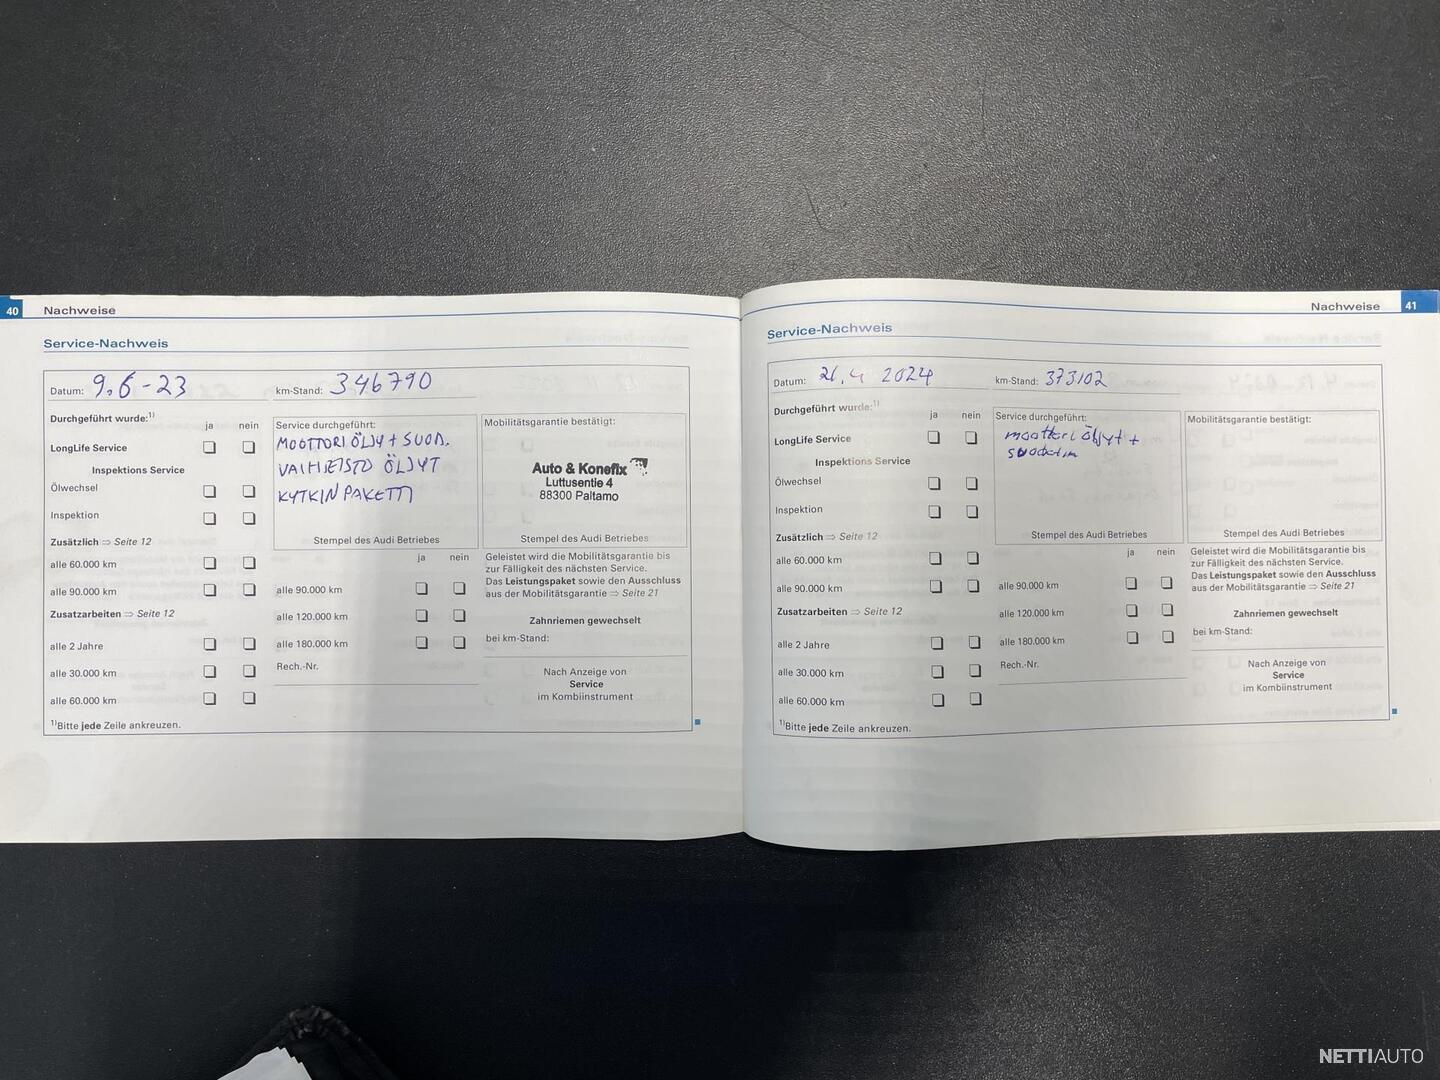 40 Nachweise
Service-Nachweis
Datum: 9.6-23 km-Stand: 346790
Durchgeführt wurde:1)
ja nein
LongLife Service
Inspektions Service
Ölwechsel
Inspektion
Zusätzlich ⇒ Seite 12
alle 60.000 km
alle 90.000 km
Zusatzarbeiten ⇒ Seite 12
alle 2 Jahre
alle 30.000 km
alle 60.000 km
1)Bitte jede Zeile ankreuzen.
Service durchgeführt:
MOOTTORIÖLJY + SUOD.
VAIHTEISTO ÖLJYT
KYTKINPAKETTI
Stempel des Audi Betriebes
ja nein
alle 90.000 km
alle 120.000 km
alle 180.000 km
Rech.-Nr.
Mobilitätsgarantie bestätigt:
Auto & Konefix
Luttusentie 4
88300 Paltamo
Stempel des Audi Betriebes
Geleistet wird die Mobilitätsgarantie bis
zur Fälligkeit des nächsten Service.
Das Leistungspaket sowie den Ausschluss
aus der Mobilitätsgarantie ⇒ Seite 21
Zahnriemen gewechselt
bei km-Stand:
Nach Anzeige von
Service
im Kombiinstrument
Nachweise 41
Service-Nachweis
Datum: 21.4 2024 km-Stand: 373102
Durchgeführt wurde:1)
ja nein
LongLife Service
Inspektions Service
Ölwechsel
Inspektion
Zusätzlich ⇒ Seite 12
alle 60.000 km
alle 90.000 km
Zusatzarbeiten ⇒ Seite 12
alle 2 Jahre
alle 30.000 km
alle 60.000 km
1)Bitte jede Zeile ankreuzen.
Service durchgeführt:
moottori öljyt +
suodatin
Stempel des Audi Betriebes
ja nein
alle 90.000 km
alle 120.000 km
alle 180.000 km
Rech.-Nr.
Mobilitätsgarantie bestätigt:
Stempel des Audi Betriebes
Geleistet wird die Mobilitätsgarantie bis
zur Fälligkeit des nächsten Service.
Das Leistungspaket sowie den Ausschluss
aus der Mobilitätsgarantie ⇒ Seite 21
Zahnriemen gewechselt
bei km-Stand:
Nach Anzeige von
Service
im Kombiinstrument
NETTIAUTO